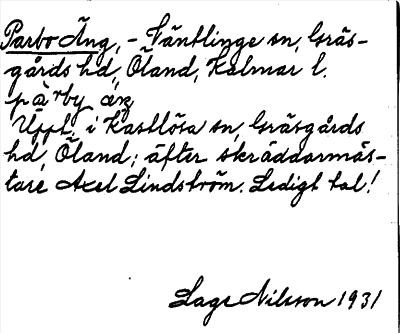 Parbo Äng, - Väntlinge sn, Gräs-
gårds hd, Öland, Kalmar l.
pärby äng
Uppt. i Kastlösa sn, Gräsgårds
hd, Öland; äfter skräddarmäs-
tare Axel Lindström. Ledigt tal!
Lage Nilsson 1931